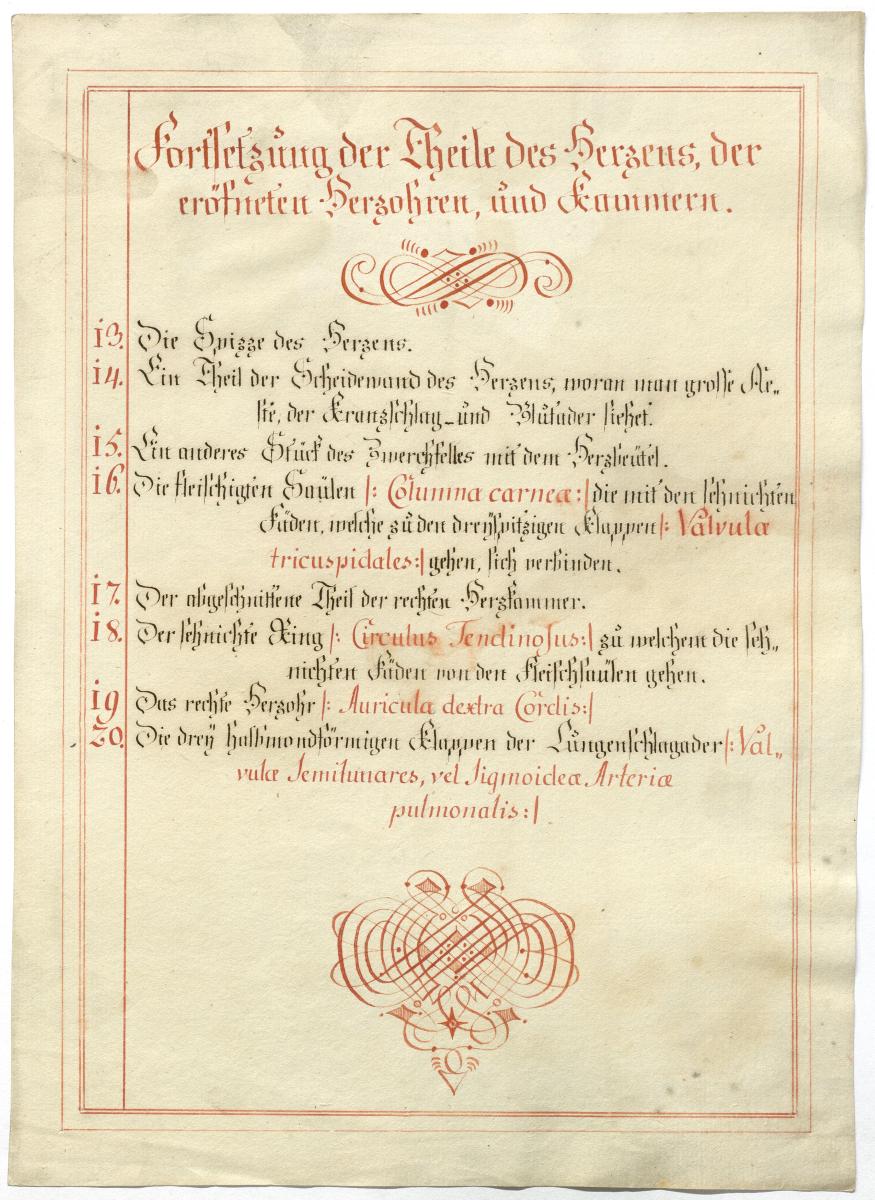 Fortsetzung der Theile des Herzens, der
eröfneten Herzohren, und Kammern.
13. Die Spizze des Herzens.
14. Ein Theil der Scheidewand des Herzens, woran man grosse Ae„
ste, der Kranzschlag-und Blutader siehet.
15. Ein anderes Stück des Zwerchfelles mit dem Herzbeütel.
16. Die fleischigten Saülen |: Columnæ carneæ:| die mit den sehnichten
Fäden, welche zu den dreyspitzigen Klappen|: Valvulæ
tricuspidales:| gehen, sich verbinden.
17. Der abgeschnittene Theil der rechten Herzkammer.
18. Der sehnichte Ring |: Circulus Tendinosus:| zu welchem die seh„
nichten Fäden von den Fleischsaülen gehen.
19 Das rechte Herzohr |: Auricula dextra Cordis:|
20. Die drey halbmondförmigen Klappen der Lungenschlagader|: Val„
vulæ Semilunares, vel Sigmoideæ Arteriæ
pulmonalis:|